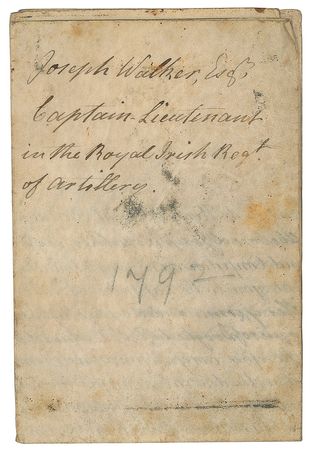 Joseph Walker, Esqr.
Captain-Lieutenant
in the Royal Irish Regt.
of Artillery.
179